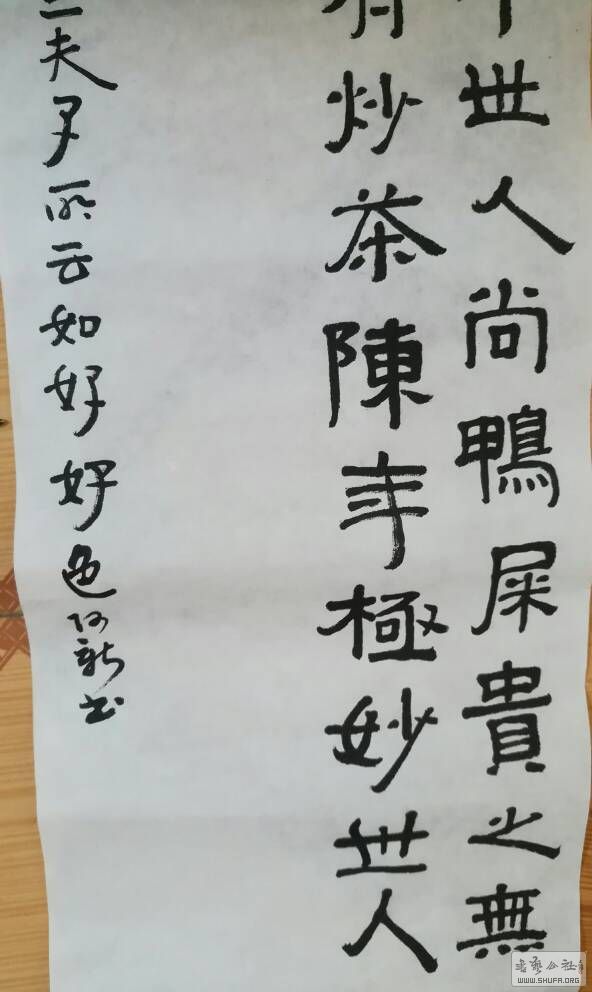 世人尚鴨屎貴之無
有炒茶陳年極妙世人
二夫子所云如好好色阿新书
WWW.SHUFA.ORG